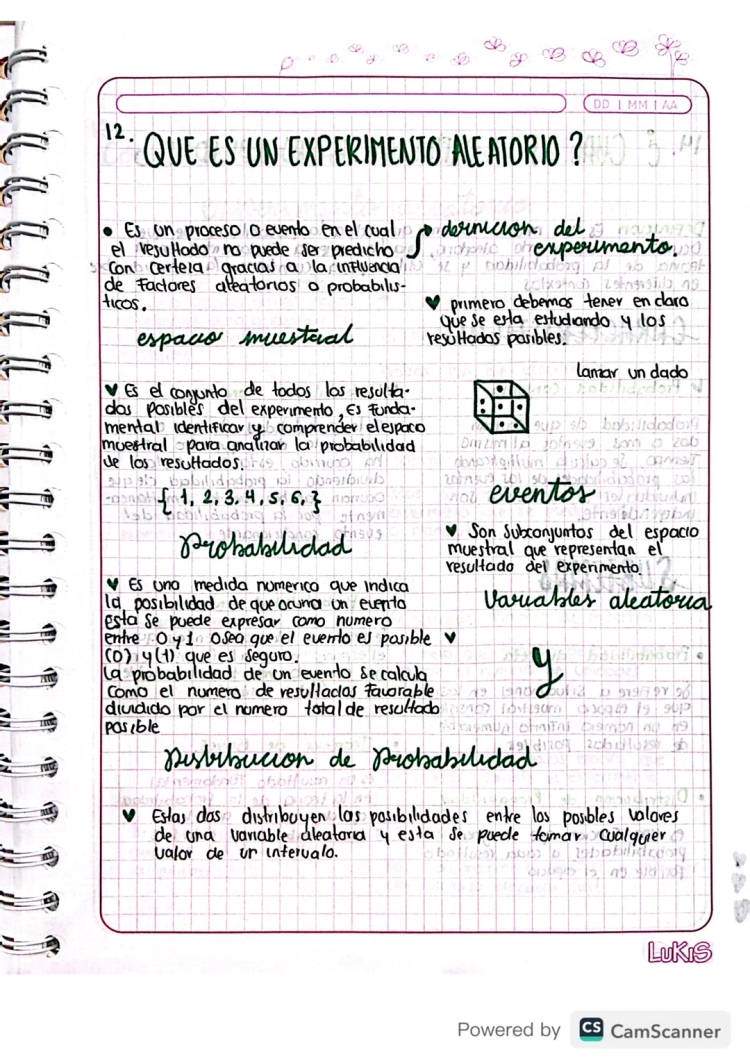 DD | MM | AA
12. QUE ES UN EXPERIMENTO ALEATORIO?
• Es un proceso o evento en el cual
el resultado no puede ser predicho
con certeza gracias a la influencia
de factores aleatorios o probabilis-
ticos.
espacio muestral
♥ Es el conjunto de todos los resulta-
dos posibles del experimento, Es funda-
mental identificar y comprender el espacio
muestral para analizar la probabilidad
de los resultados.
{ 1, 2, 3, 4, 5, 6, }
Probabilidad
♥ Es una medida numerica que indica
la posibilidad de que ocurra un evento
esta se puede expresar como numero
entre 0 y 1 osea que el evento es posible
(0) y (1) que es seguro.
La probabilidad de un evento se calcula
como el numero de resultados favorable
dividido por el numero total de resultado
posible
definicion del
experimento.
♥ primero debemos tener en claro
que se esta estudiando y los
resultados posibles.
lanzar un dado
eventos
♥ Son subconjuntos del espacio
muestral que representan el
resultado del experimento.
Variables aleatoria
♥
y
Distribucion de Probabilidad
♥ Estas dos distribuyen las posibilidades entre los posbles valores
de una variable aleatoria y esta se puede tomar cualquier
valor de un intervalo.
LUKIS
Powered by CS CamScanner